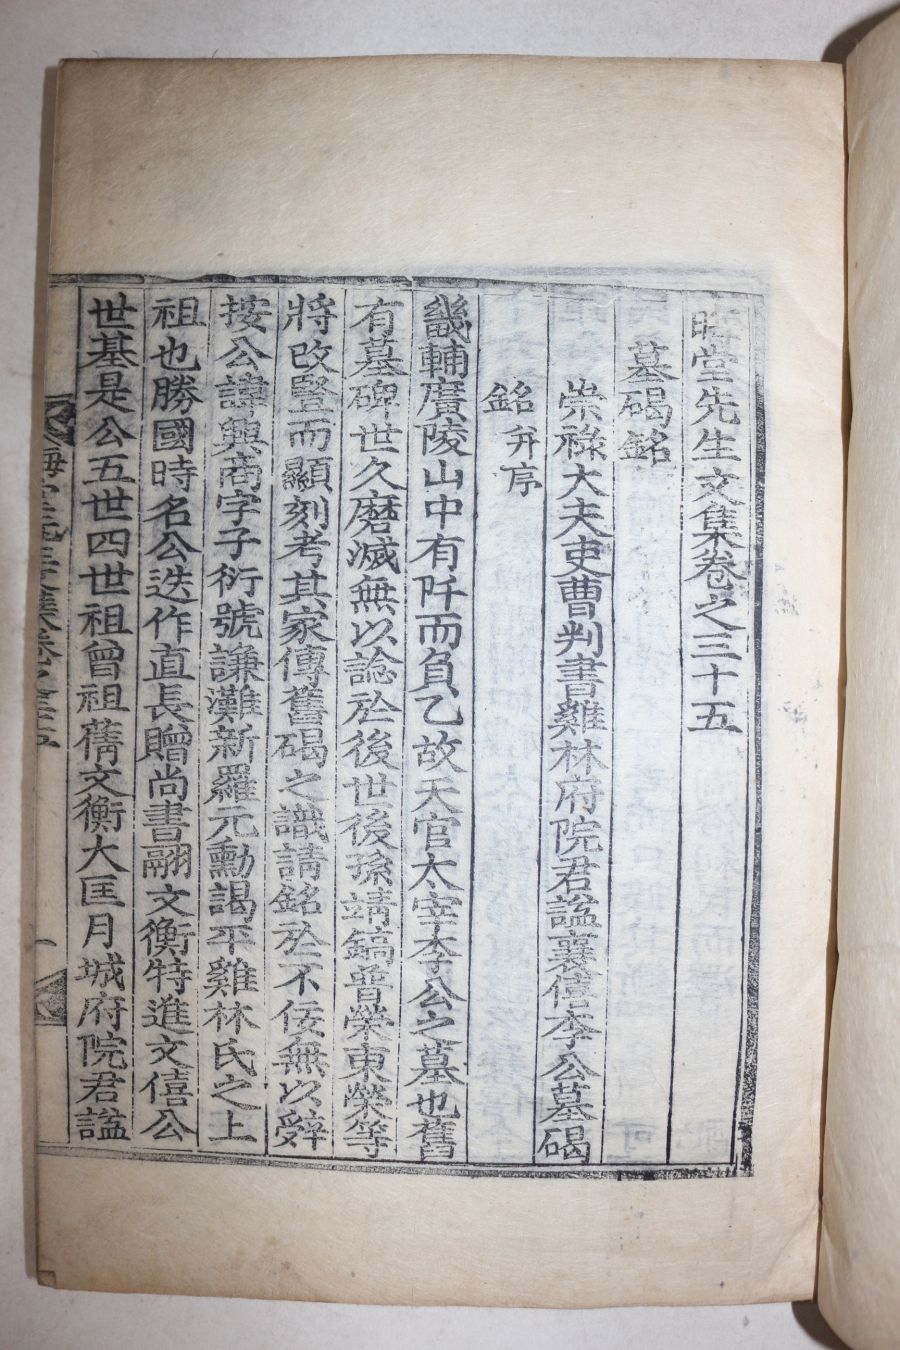 晦堂先生文集卷之三十五
墓碣銘
崇祿大夫吏曹判書雞林府院君諡襄僖李公墓碣
銘 幷序
畿輔廣陵山中有阡而負乙故天官太宰李公之墓也舊
有墓碑世久磨滅無以諗於後世後孫靖鎬晋榮東榮等
將改竪而顯刻考其家傳舊碣之識請銘於不佞無以辭
按公諱興商字子衍號謙灘新羅元勳謁平雞林氏之上
祖也勝國時名公迭作直長贈尙書翮文衡特進文僖公
世基是公五世四世祖曾祖蒨文衡大匡月城府院君諡